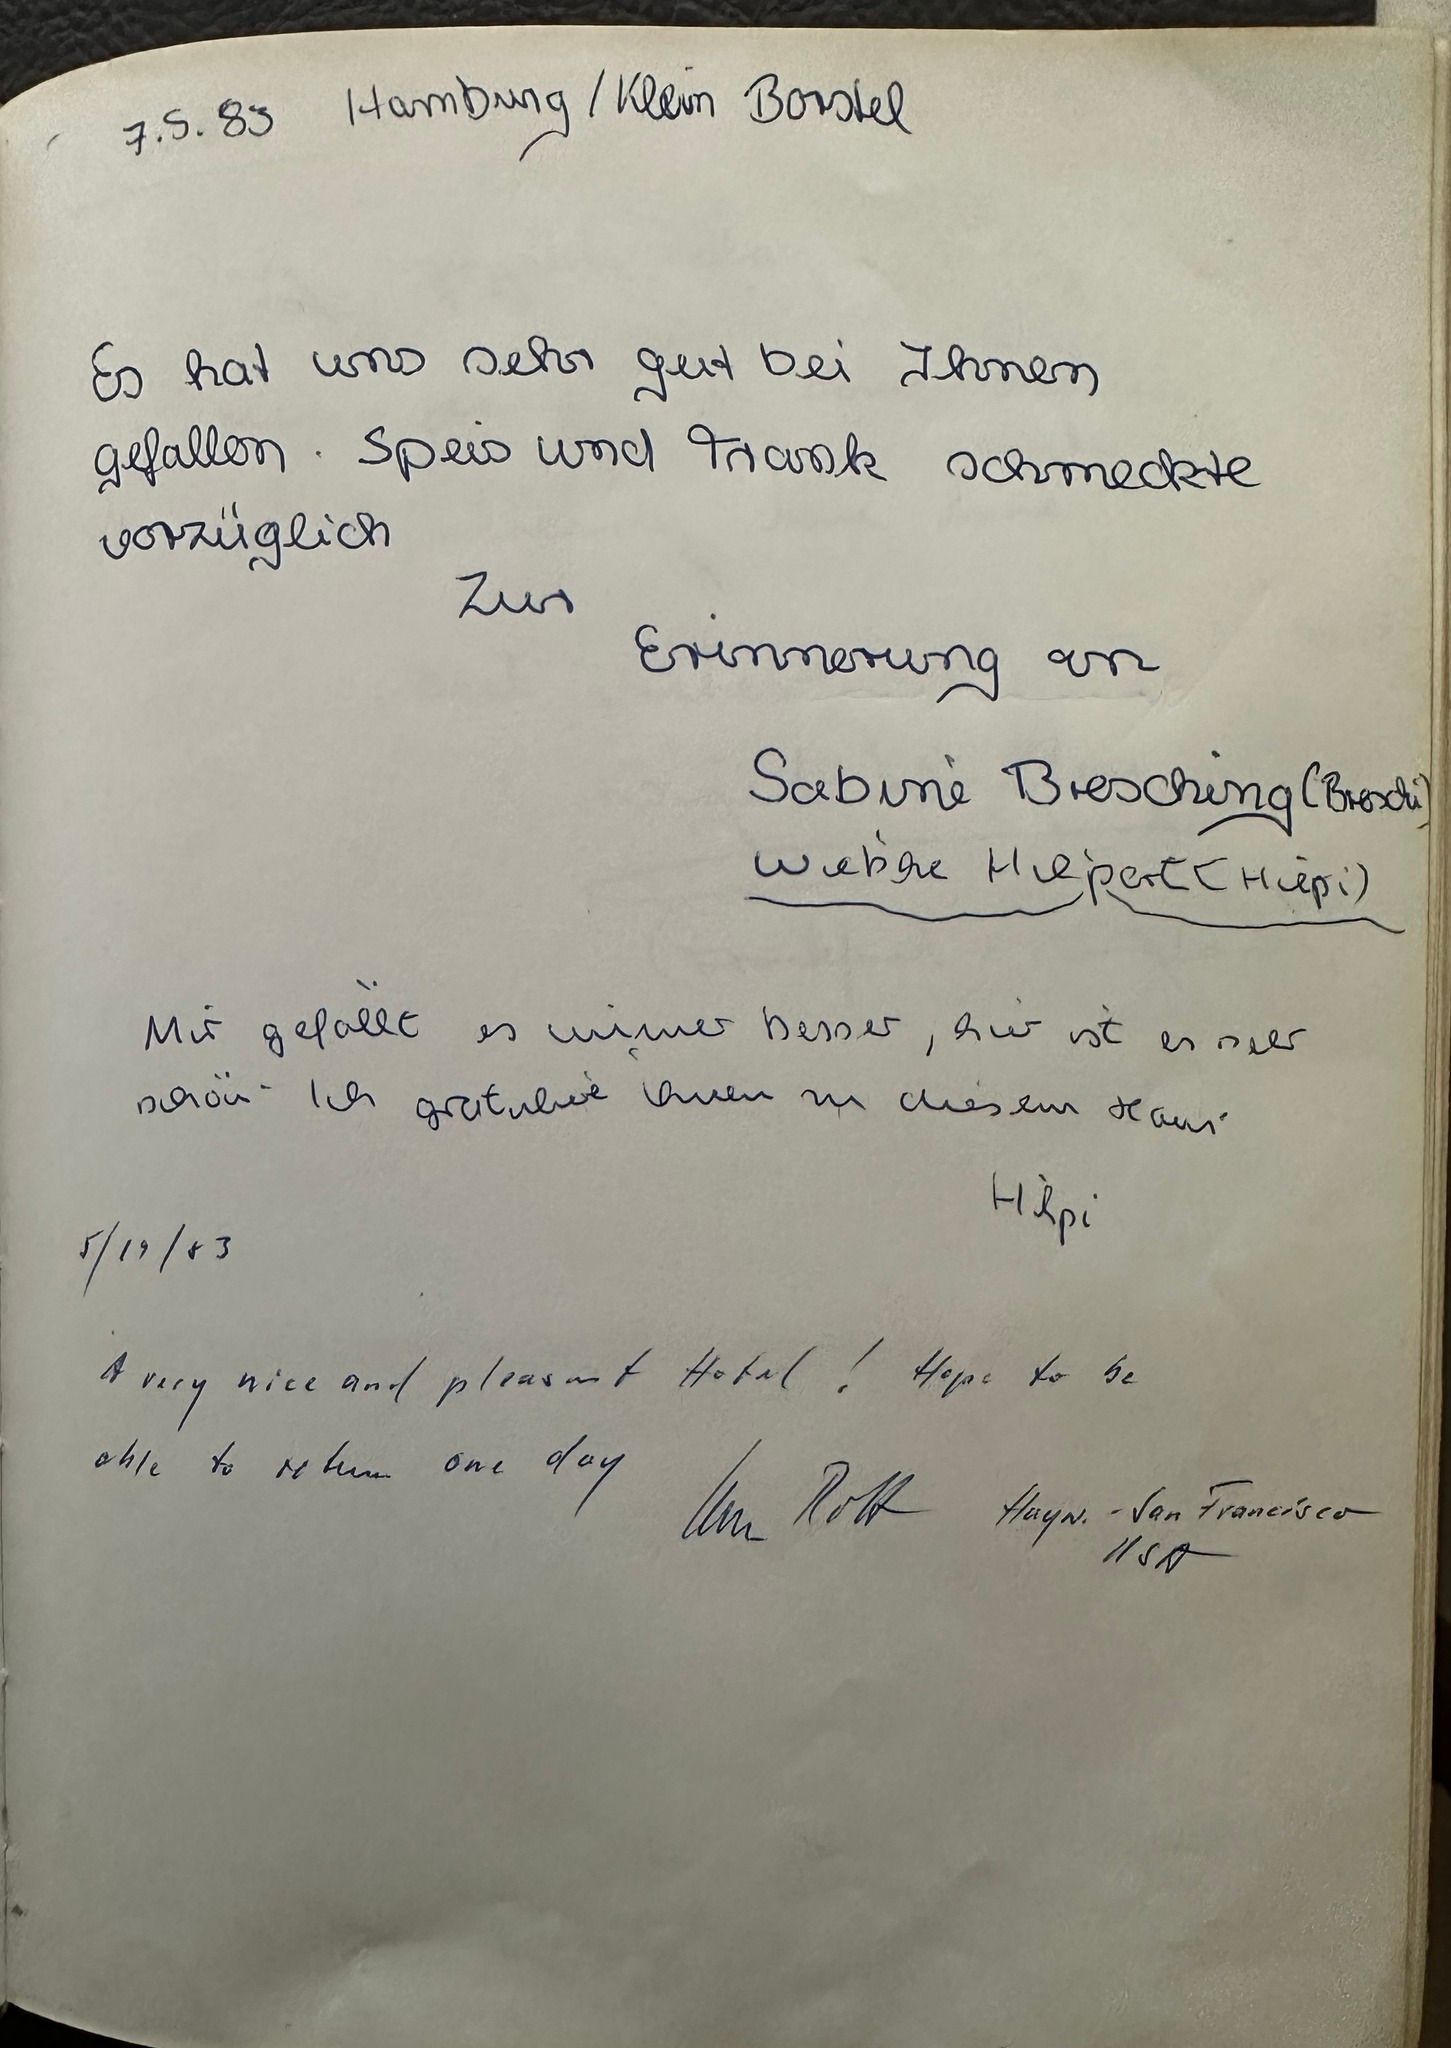 7.5.83 Hamburg/Klein Borstel
Es hat uns sehr gut bei Ihnen
gefallen. Speis und Trank schmeckte
vorzüglich
Zur
Erinnerung an
Sabine Bresching (Breschi)
Wiebke Hilpert (Hilpi)
Mir gefällt es immer besser, hier ist es sehr
schön. Ich gratuliere Ihnen zu diesem Haus
Hilpi
5/19/83
A very nice and pleasant Hotel! Hope to be
able to return one day
Rott Hayw. - San Francisco
USA